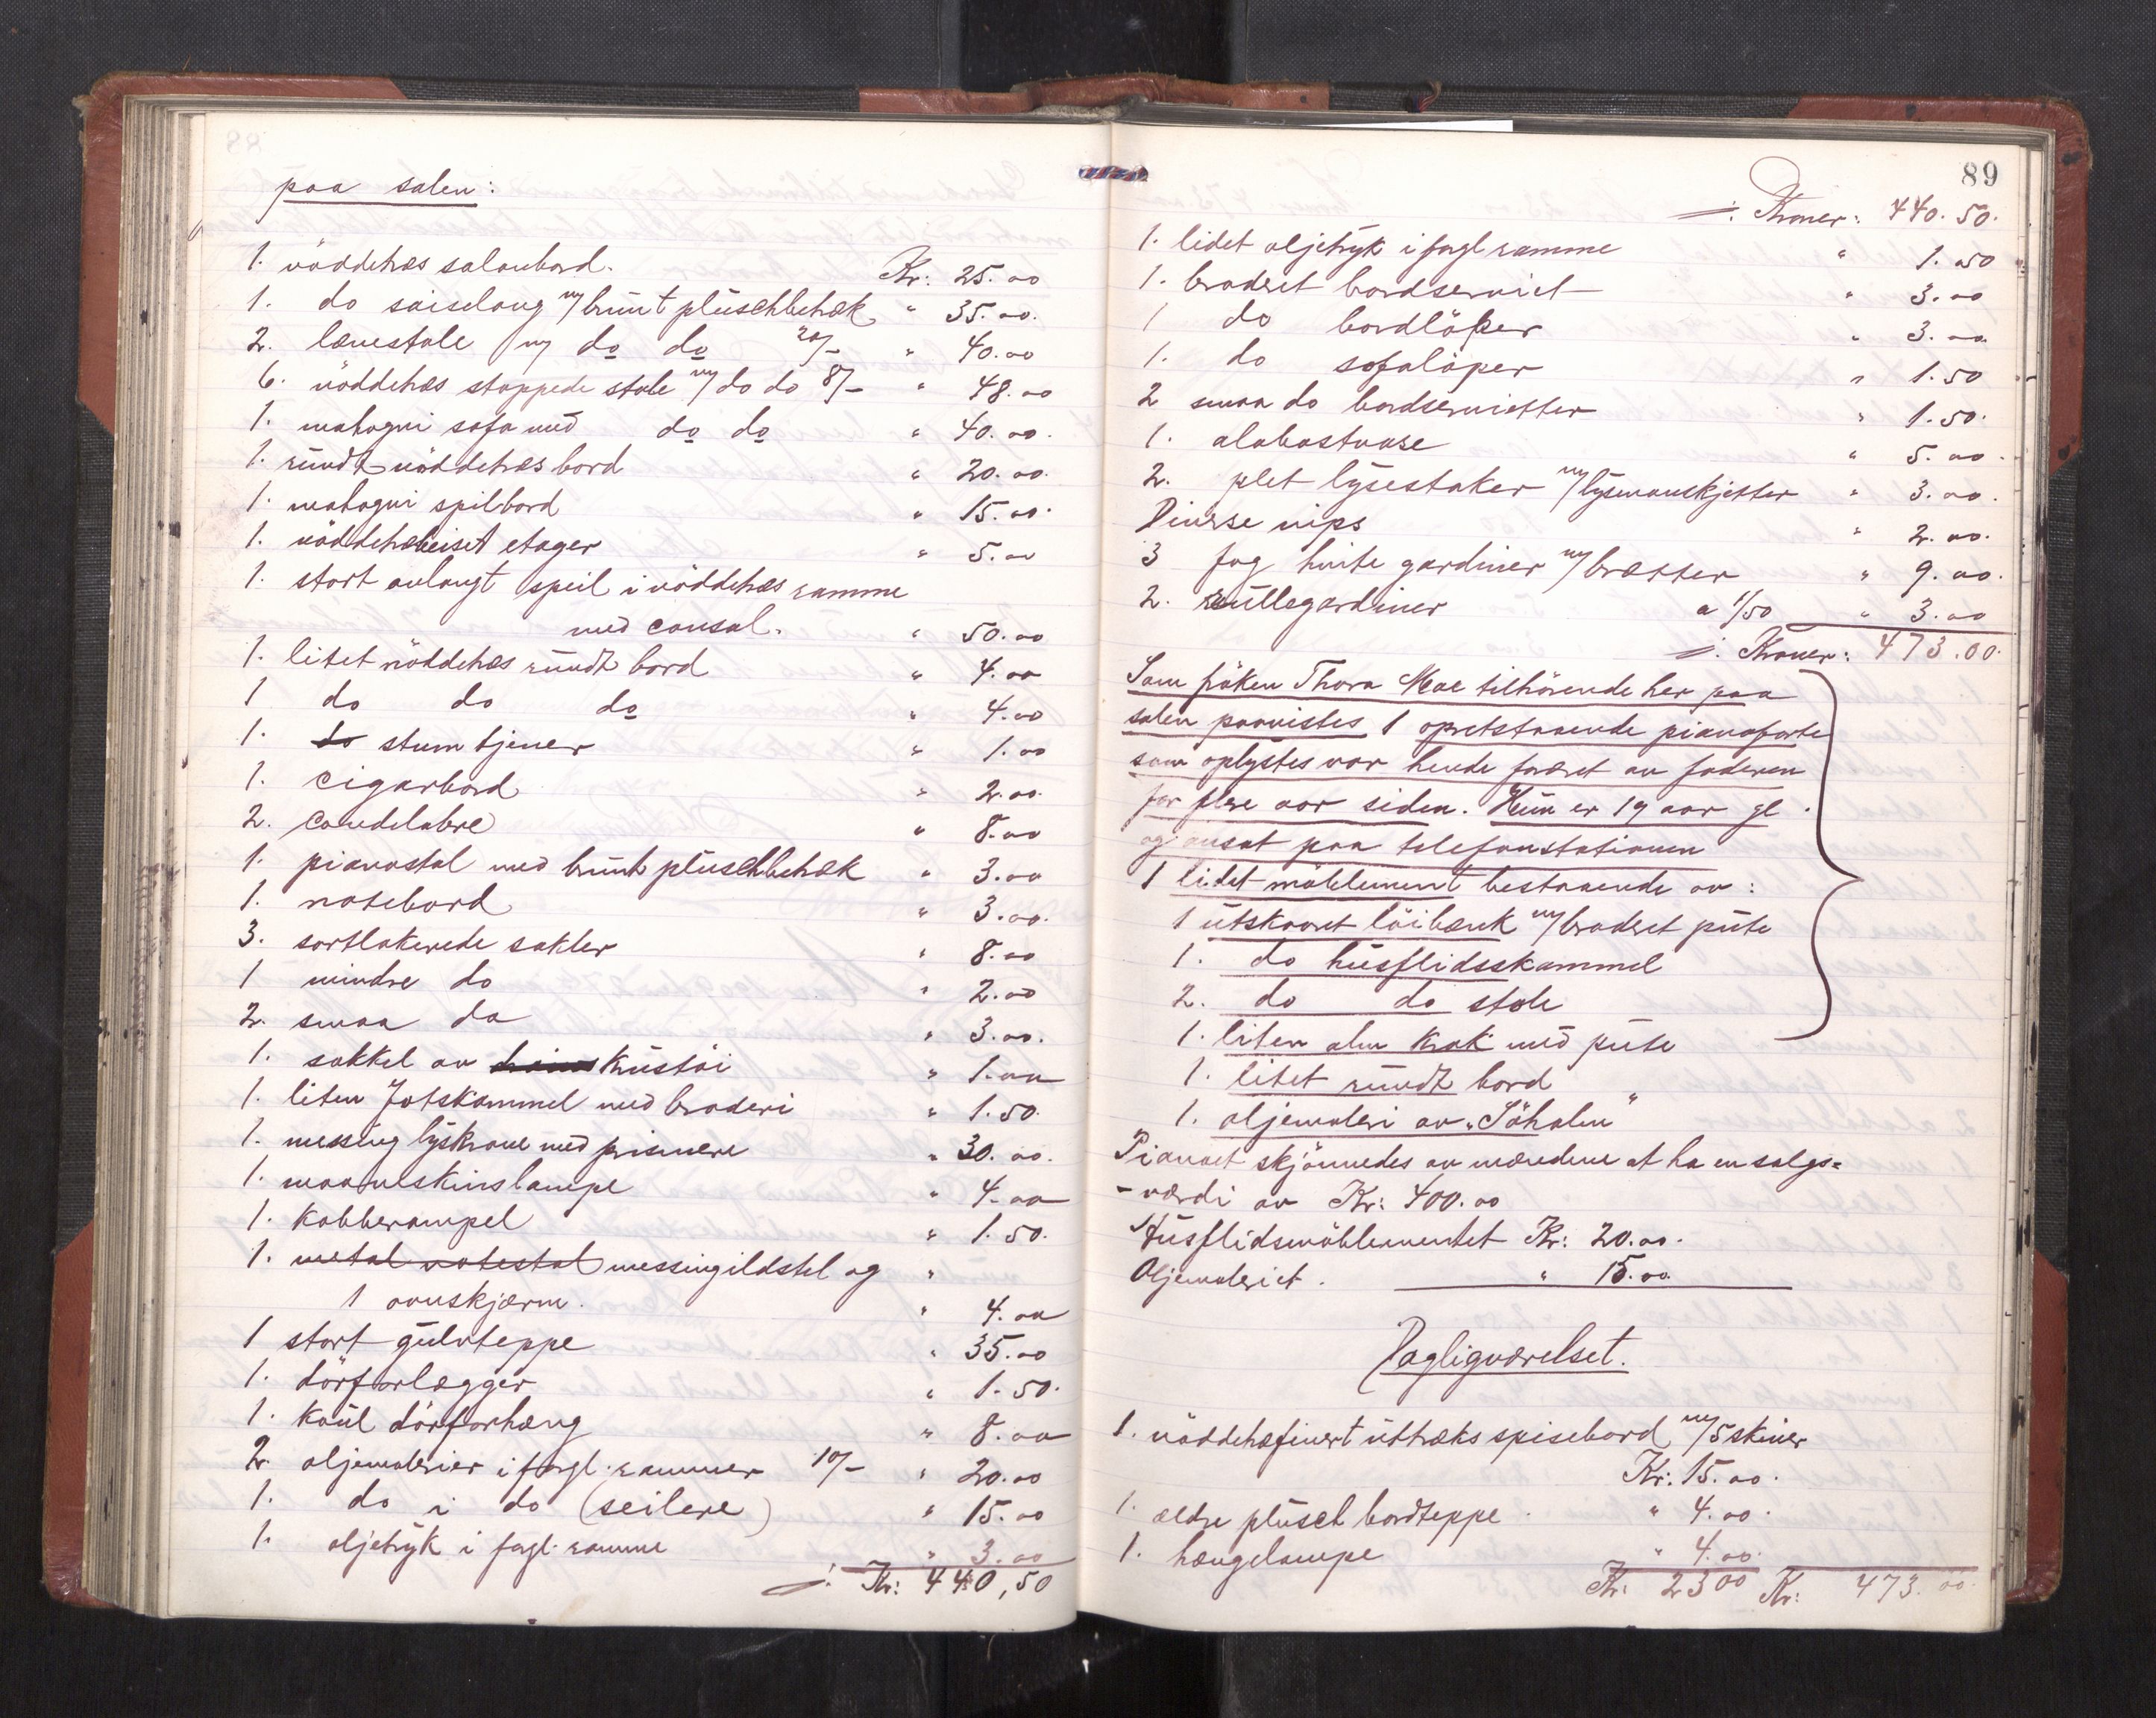 paa salen:
1. nöddetræs salonbord. Kr: 25.00
1. do saiselong m/ brunt plüschbetræk " 35.00.
2. lænestole m/ do do 20/- " 40.00
6. nöddetræs stoppede stole m/ do do 8/- " 48.00
1. mahogni sofa med do do " 40.00.
1. rundt nöddetræs bord " 20.00.
1. mahogni spilbord " 15.00.
1. nöddetræbeiset etager " 5.00
1. stort avlangt speil i nöddetræs ramme
med consol. " 50.00
1. litet nöddetræs rundt bord " 4.00
1 do do do " 4.00
1. do stumtjener " 1.00
1. cigarbord " 2.00.
2. candelabre " 8.00
1. pianostol med brunt plüschbetræk " 3.00
1. notebord " 3.00.
3. sortlakerede sokler " 8.00
1 mindre do " 2.00
2. smaa do " 3.00.
1. sokkel av kustöi " 1.00
1. liten fotskammel med broderi " 1.50.
1. messing lyskrone med prismere " 30.00.
1. maaneskinslampe " 4.00
1. kobberampel " 1.50.
1. metal notestol messingildstel og "
1 ovnskjærm. " 4.00
1 stort gulvteppe " 35.00
1. dörforlægger " 1.50.
1. koul dörforhæng " 8.00
2. oljemalerier i forgl. rammer 10/- " 20.00
1. do i do (seilere) " 15.00
1. oljetryk i forgl. ramme " 3.00
Kr: 440,50
89
Kroner: 440.50.
1. lidet oljetryk i forgl ramme " 1.50
1. broderet bordserviet " 3.00
1 do bordlöper " 3.00
1. do sofalöper " 1.50
2 smaa do bordservietter " 1.50.
1. alabastvase " 5.00.
2. plet lysestaker m/ lysmanskjetter " 3.00.
Diverse nips " 2.00.
3 fag hvite gardiner m/ brætter " 9.00.
2. rullegardiner a 1/50 " 3.00
Kroner: 473.00.
Som fröken Thora Moe tilhörende her paa
salen paavistes 1 opretstaaende pianoforte
som oplystes var hende foræret av faderen
for flere aar siden. Hun er 19 aar gl.
og ansat paa telefonstationen
1 lidet möblement bestaaende av:
1 utskaaret löibænk m/ broderet pute
1. do husflidsskammel
2. do do stole
1. liten alm krak med pute
1. litet rundt bord
1. oljemaleri av "Söholm"
Pianoet skjönnedes av mændene at ha en salgs=
-værdi av Kr: 400.00
Husflidsmöblementet Kr: 20.00.
Oljemaleriet. " 15.00.
Dagligværelset.
1. nöddetræfinert uttræks spisebord m/ 5 skiver
Kr: 15.00.
1. ældre plüsch bordteppe. " 4.00.
1. hængelampe " 4.00.
Kr: 23 00 Kr: 473.00.